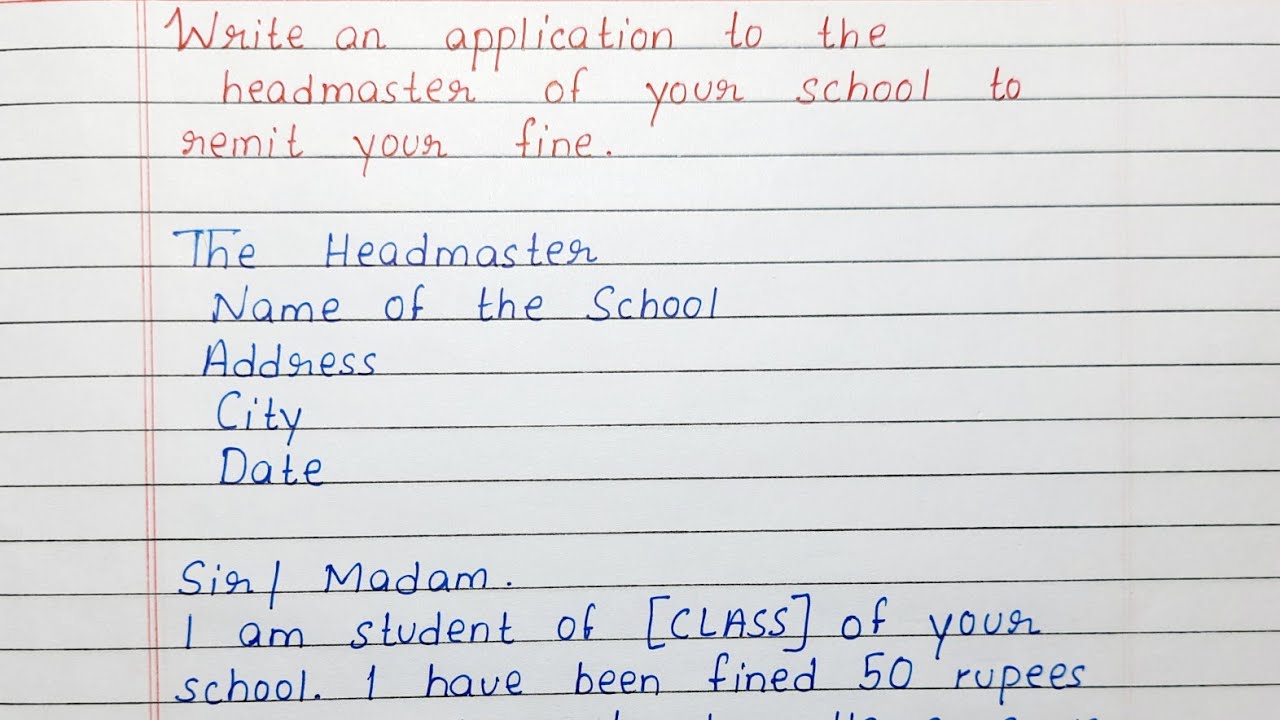 Write an application to the
headmaster of your school to
remit your fine.
The Headmaster
Name of the School
Address
City
Date
Sir/ Madam.
I am student of [CLASS] of your
school. I have been fined 50 rupees